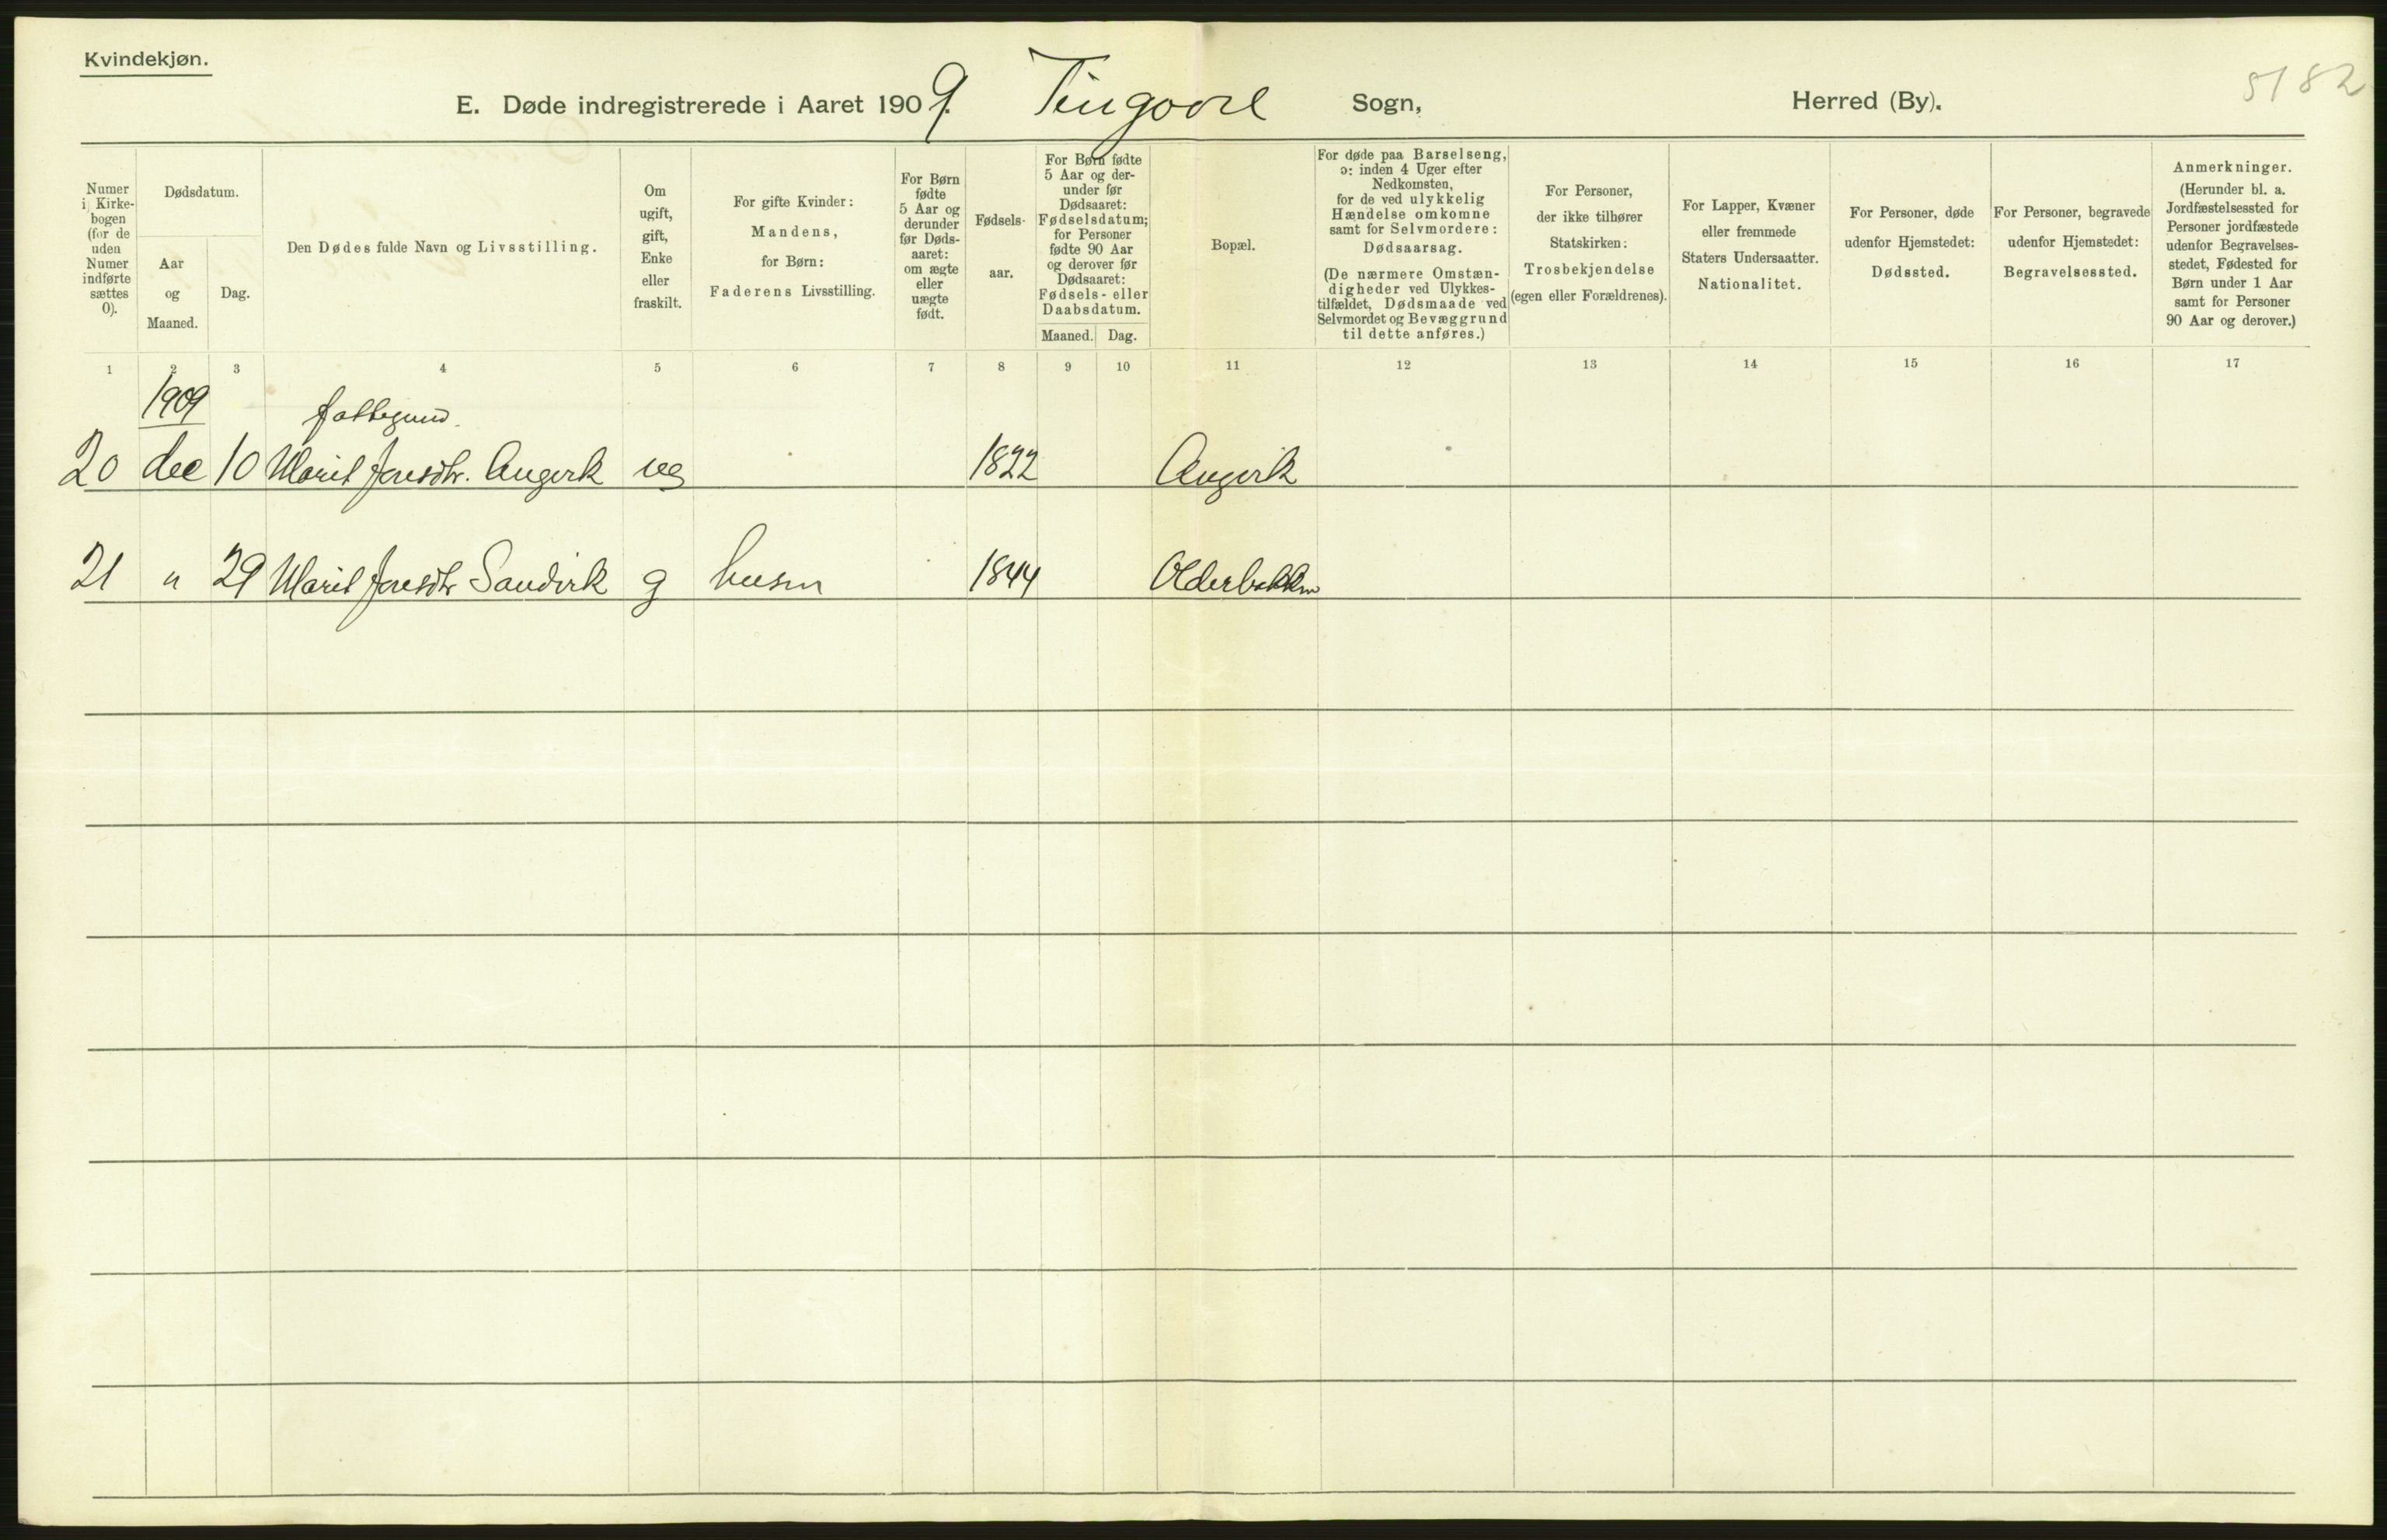 Kvindekjøn.
E. Døde indregistrerede i Aaret 1909. Tingvoll Sogn, Herred (By).
5182
Numer i Kirkebogen (for de uden Numer indførte sættes 0).
Dødsdatum.
Aar og Maaned.
Dag.
Den Dødes fulde Navn og Livsstilling.
Om ugift, gift, Enke eller fraskilt.
For gifte Kvinder: Mandens, for Børn: Faderens Livsstilling.
For Børn fødte 5 Aar og derunder før Døds-aaret: om ægte eller uægte født.
Fødsels-aar.
For Børn fødte 5 Aar og der-under før Dødsaaret: Fødselsdatum; for Personer fødte 90 Aar og derover før Dødsaaret: Fødsels- eller Daabsdatum.
Maaned. Dag.
Bopæl.
For døde paa Barselseng, ɔ: inden 4 Uger efter Nedkomsten, for de ved ulykkelig Hændelse omkomne samt for Selvmordere: Dødsaarsag. (De nærmere Omstæn-digheder ved Ulykkes-tilfældet, Dødsmaade ved Selvmordet og Bevæggrund til dette anføres.)
For Personer, der ikke tilhører Statskirken: Trosbekjendelse (egen eller Forældrenes).
For Lapper, Kvæner eller fremmede Staters Undersaatter. Nationalitet.
For Personer, døde udenfor Hjemstedet: Dødssted.
For Personer, begravede udenfor Hjemstedet: Begravelsessted.
Anmerkninger. (Herunder bl. a. Jordfæstelsessted for Personer jordfæstede udenfor Begravelses-stedet, Fødested for Børn under 1 Aar samt for Personer 90 Aar og derover.)
1 2 3 4 5 6 7 8 9 10 11 12 13 14 15 16 17
1909 fattigund.
20 dec 10 Marit Jonsdtr. Angvik ug 1822 Angvik
21 " 29 Marit Jonsdtr Sandvik g husm 1844 Olderbakken